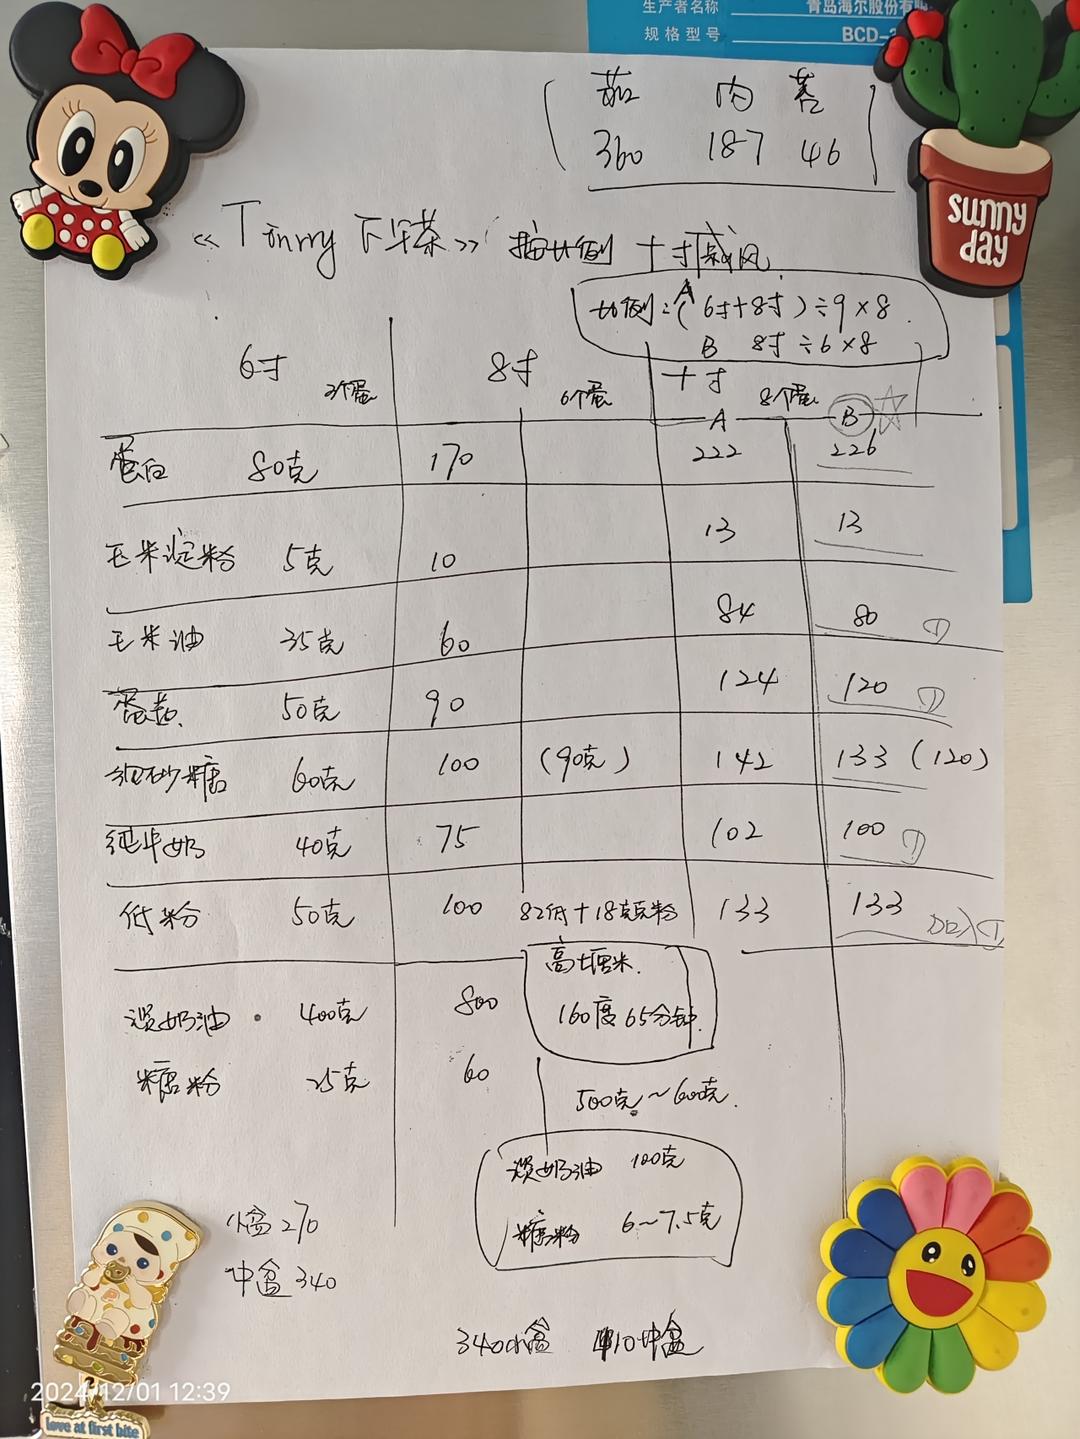 生产者名称 青岛海尔股份有限
规格型号 BCD-
茄 肉
360 187 46
sunny
day
《Tinrry下午茶》按比例 十寸戚风
比例:A(6寸+8寸)÷9×8
B 8寸÷6×8
6寸 3个蛋 8寸 6个蛋 十寸 8个蛋
A B
蛋白 80克 170 222 226
玉米淀粉 5克 10 13 13
玉米油 35克 60 84 80 ①
蛋黄 50克 90 124 120 ①
细砂糖 60克 100 (90克) 142 133 (120)
纯牛奶 40克 75 102 100 ①
低粉 50克 100 82低+18克 粉 133 133
淡奶油 400克 800
糖粉 25克 60
160度 65分钟
500克~600克
淡奶油 100克
糖粉 6~7.5克
小盒 270
中盒 340
340小盒 中盒
2024/12/01 12:39
love at first bite